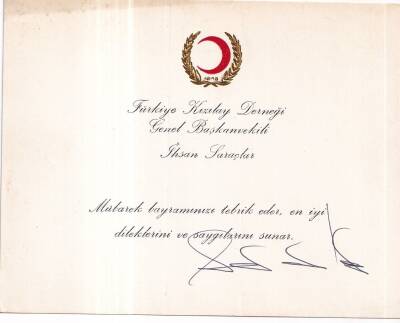 Türkiye Kızılay Derneği
Genel Başkanvekili
İhsan Saraçlar
Mübarek bayramınızı tebrik eder, en iyi
dileklerini ve saygılarını sunar.